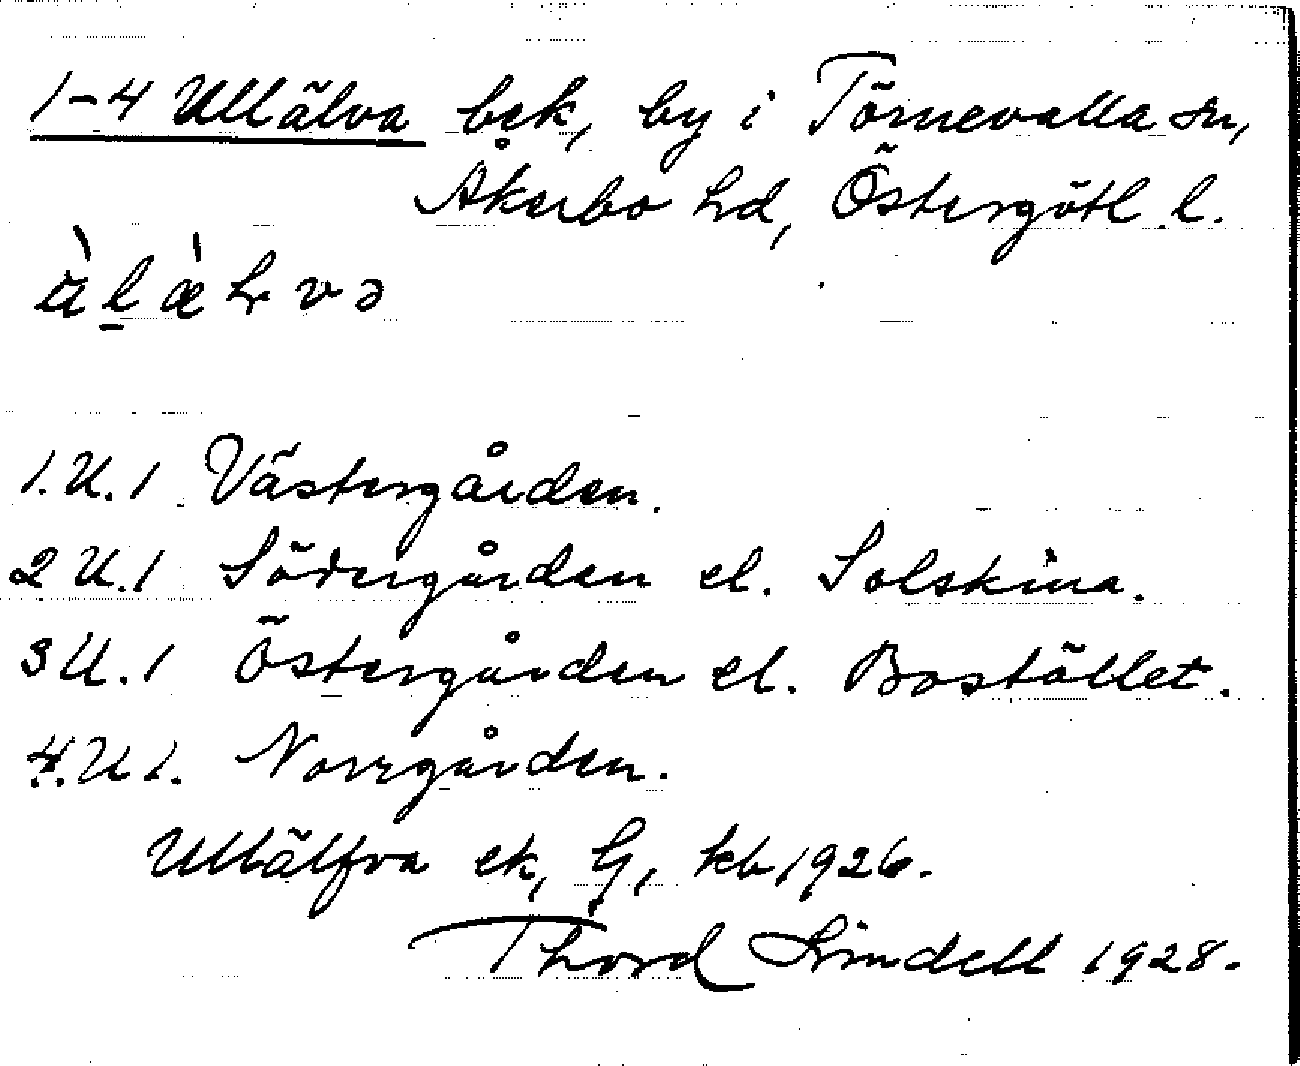 1-4 Ullälva bek, by i Törnevalla sn,
Åkerbo hd, Östergötl. l.
1.U.1 Västergården.
2 U.1 Södergården el. Solskina.
3 U.1 Östergården el. Bostället.
4.U 1. Norrgården.
Ullälfva ek, G, kb 1926.
Thord Lindell 1928.